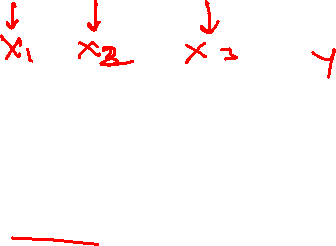 x₁ x₂ x₃ y